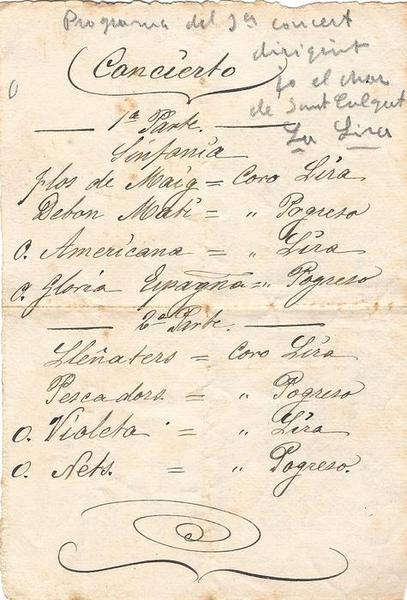 Programa del 1er concert
dirigint
jo el chor
de Sant Culgat
La Lira
Concierto
1ª Parte.
Sinfania
flos de Maig = Coro Lira
Debon Mati = " Pogreso
O. Americana = " Lira
O. Gloria Espagna = " Pogreso
2ª Parte.
Lleñaters = Coro Lira
Pescadors. = " Pogreso
O. Violeta = " Lira
O. Nets. = " Pogreso.